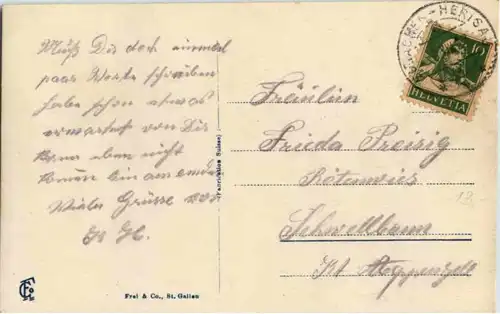 Muß Dir doch einmal
paar Worte schreiben
habe schon etwas
erwartet von Dir
kann aber nicht
kommen bin am
Viele Grüsse von
H.
(Fabrication Suisse)
Frei & Co., St. Gallen
HERISAU
10
HELVETIA
Fräulein
Frieda Preisig
Rotenwies
Schwellbrunn
Kt Appenzell